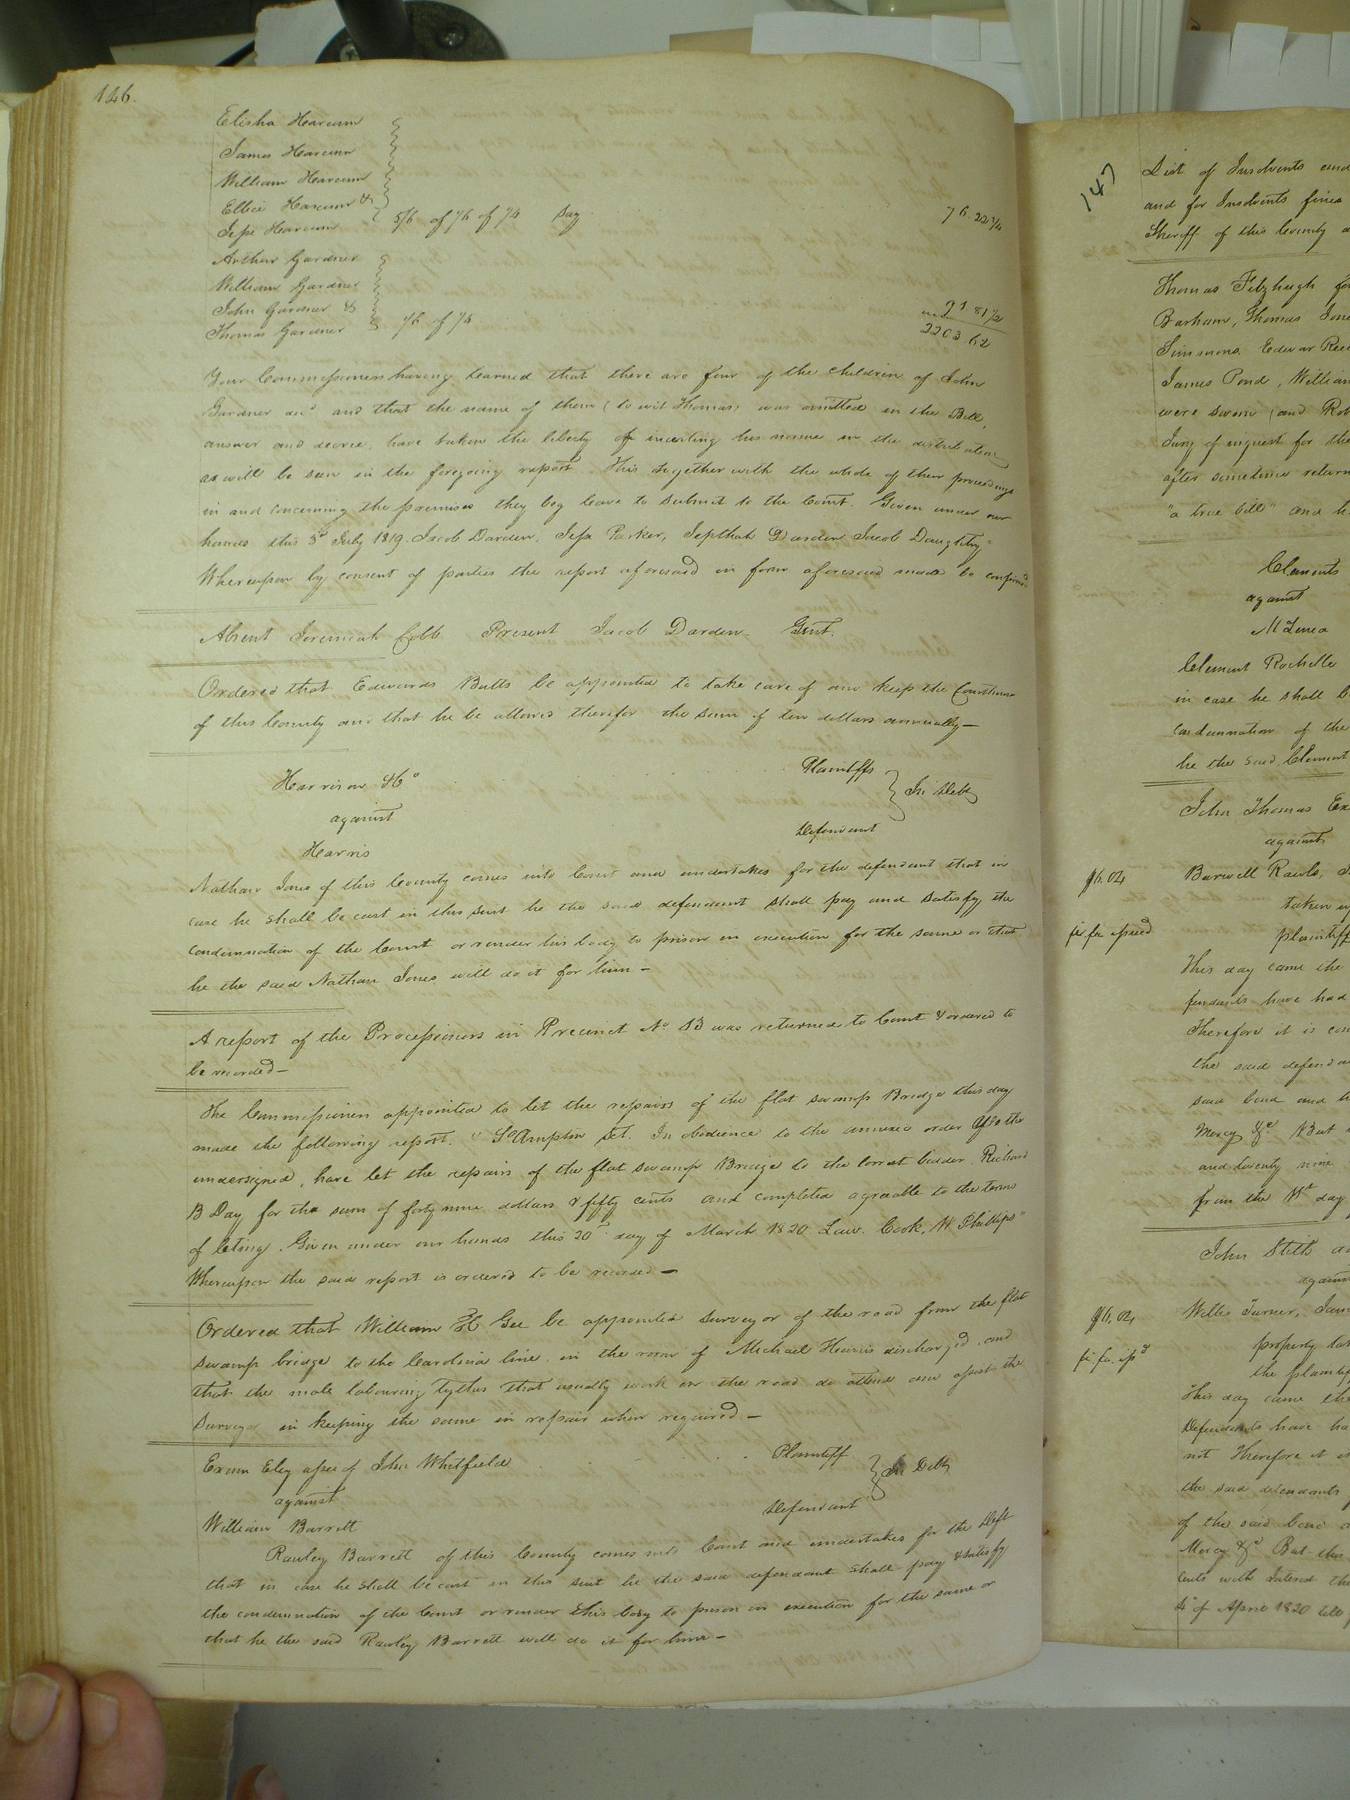 146.
Elisha Harcum
James Harcum
William Harcum
Ellice Harcum &
Jesse Harcum 5/6 of 1/6 of 1/4 Say 76.22 3/4
Arthur Gardner
William Gardner
John Gardner &
Thomas Gardner 1/6 of 1/4 91 81 1/2
2203 62
Your Commissioners having learned that there are four of the children of John
Gardner decd and that the name of them (to wit Thomas) was omitted in the Bill,
answer and decree, have taken the liberty of inserting his name in the distribution
as will be seen in the foregoing report. This together with the whole of their proceedings
in and concerning the premises they beg leave to submit to the Court. Given under our
hands this 3d July 1819. Jacob Darden, Jesse Parker, Jepthah Darden Jacob Daughtry
Whereupon by consent of parties the report aforesaid in form aforesaid made be confirmed
Absent Jeremiah Cobb Present Jacob Darden Gent.
Ordered that Edwards Butts be appointed to take care of and keep the Courthouse
of this County and that he be allowed therefor the sum of ten dollars annually—
Harrison & Co Plaintiffs
against In Debt
Harris Defendant
Nathan Jones of this County comes into Court and undertakes for the defendant that in
case he shall be cast in this suit he the said defendant shall pay and satisfy the
condemnation of the Court or render his body to prison in execution for the same or that
he the said Nathan Jones will do it for him—
A report of the Processioners in Precinct No 13 was returned to Court & ordered to
be recorded—
The Commissioners appointed to let the repairs of the flat swamp Bridge this day
made the following report. "So Ampton Sct. In obedience to the annexed order We the
undersigned, have let the repairs of the flat swamp Bridge to the lowest bidder Richard
B Day for the sum of forty nine dollars & fifty cents and completed agreeable to the terms
of letting. Given under our hands this 20th day of March 1820 Law. Cook, W. Phillips"
Whereupon the said report is ordered to be recorded—
Ordered that William H Gee be appointed surveyor of the road from the flat
swamp bridge to the Carolina line in the room of Michael Harris discharged and
that the male labouring tythes that usually work on the road do attend and assist the
Surveyor in keeping the same in repair when required—
Exum Eley assee of John Whitfield Plaintiff
against In Debt
William Barrett Defendant
Rawley Barrett of this County comes into Court and undertakes for the Deft
that in case he shall be cast in this suit he the said defendant shall pay & satisfy
the condemnation of the Court or render his body to prison in execution for the same or
that he the said Rawley Barrett will do it for him—
147
List of Insolvents
and for Insolvents fines
Sheriff of this County
Thomas Fitzhugh
Barham, Thomas
Simmons Edwar
James Pond, William
were sworn and
Jury of inquest for the
after sometime return
"a true bill" and
Clements
against
Clement Rochelle
in case he shall
condemnation of the
he the said Clement
John Thomas Ex
against
$6.02
Burwell Rawls,
taken
fi fa issued plaintiff
This day came the
fendants have had
Therefore it is con
the said defenda
said bond and
Mercy &c But
and twenty nine
from the day
John Stith
against
$6.02 Willis Turner, Jam
property
fi fa issd the plaintif
This day came the
Defendants have ha
not Therefore it
the said defendants
of the said bond
Mercy &c But this
cents with interest
of April 1820 till